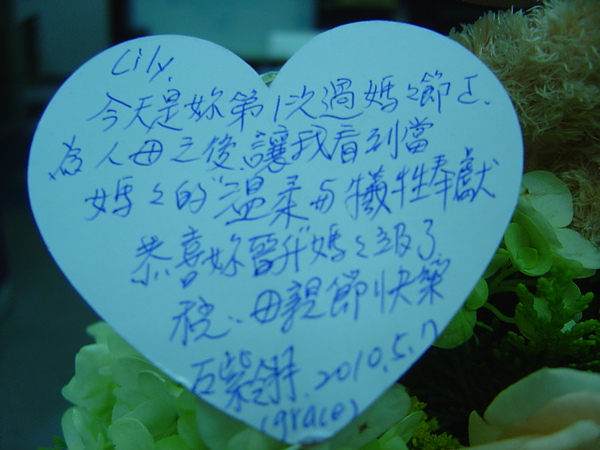 Lily.
今天是妳第1次過媽々節了.
為人母之後,讓我看到當
媽々的"溫柔与犧牲奉獻
恭喜妳晉升"媽々級了
祝:母親節快樂
石紫翎.2010.5.7
(grace)